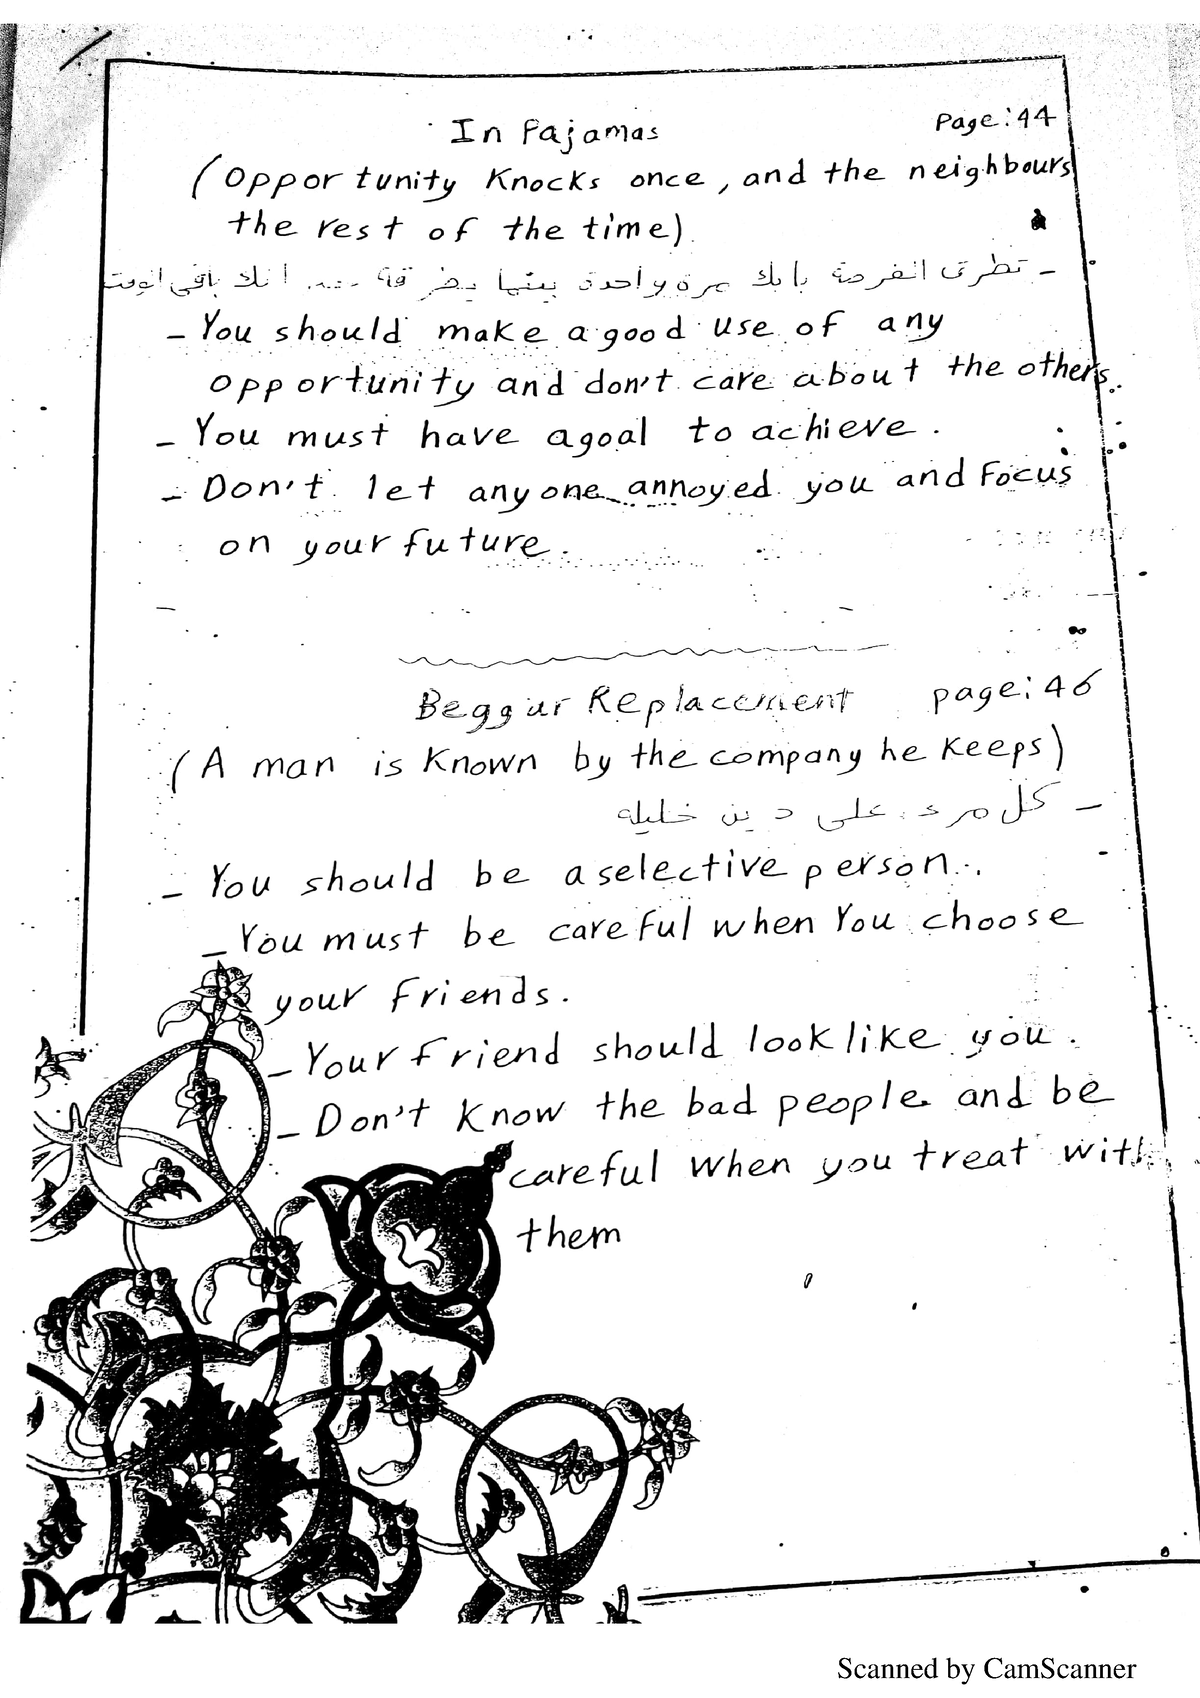 In Pajamas Page: 44
(Opportunity Knocks once, and the neighbours
the rest of the time)
- تطرق الفرصة بابك مرة واحدة بينما باقي الوقت
- You should make a good use of any
opportunity and don't care about the others.
- You must have a goal to achieve.
- Don't let anyone annoyed you and Focus
on your future.
Beggar Replacement page: 46
(A man is Known by the company he Keeps)
- كل مرء على دين خليله
- You should be a selective person.
- You must be careful when You choose
your friends.
- Your friend should look like you.
- Don't Know the bad people and be
careful when you treat with
them
Scanned by CamScanner